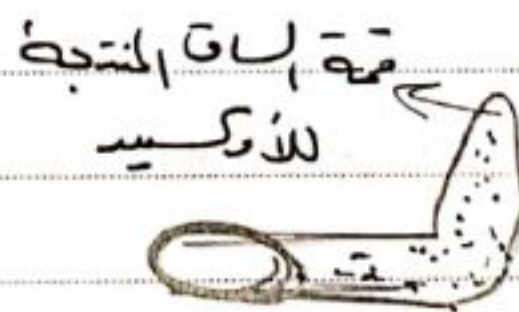 قمة الساق المنتجة
للأوكسيد